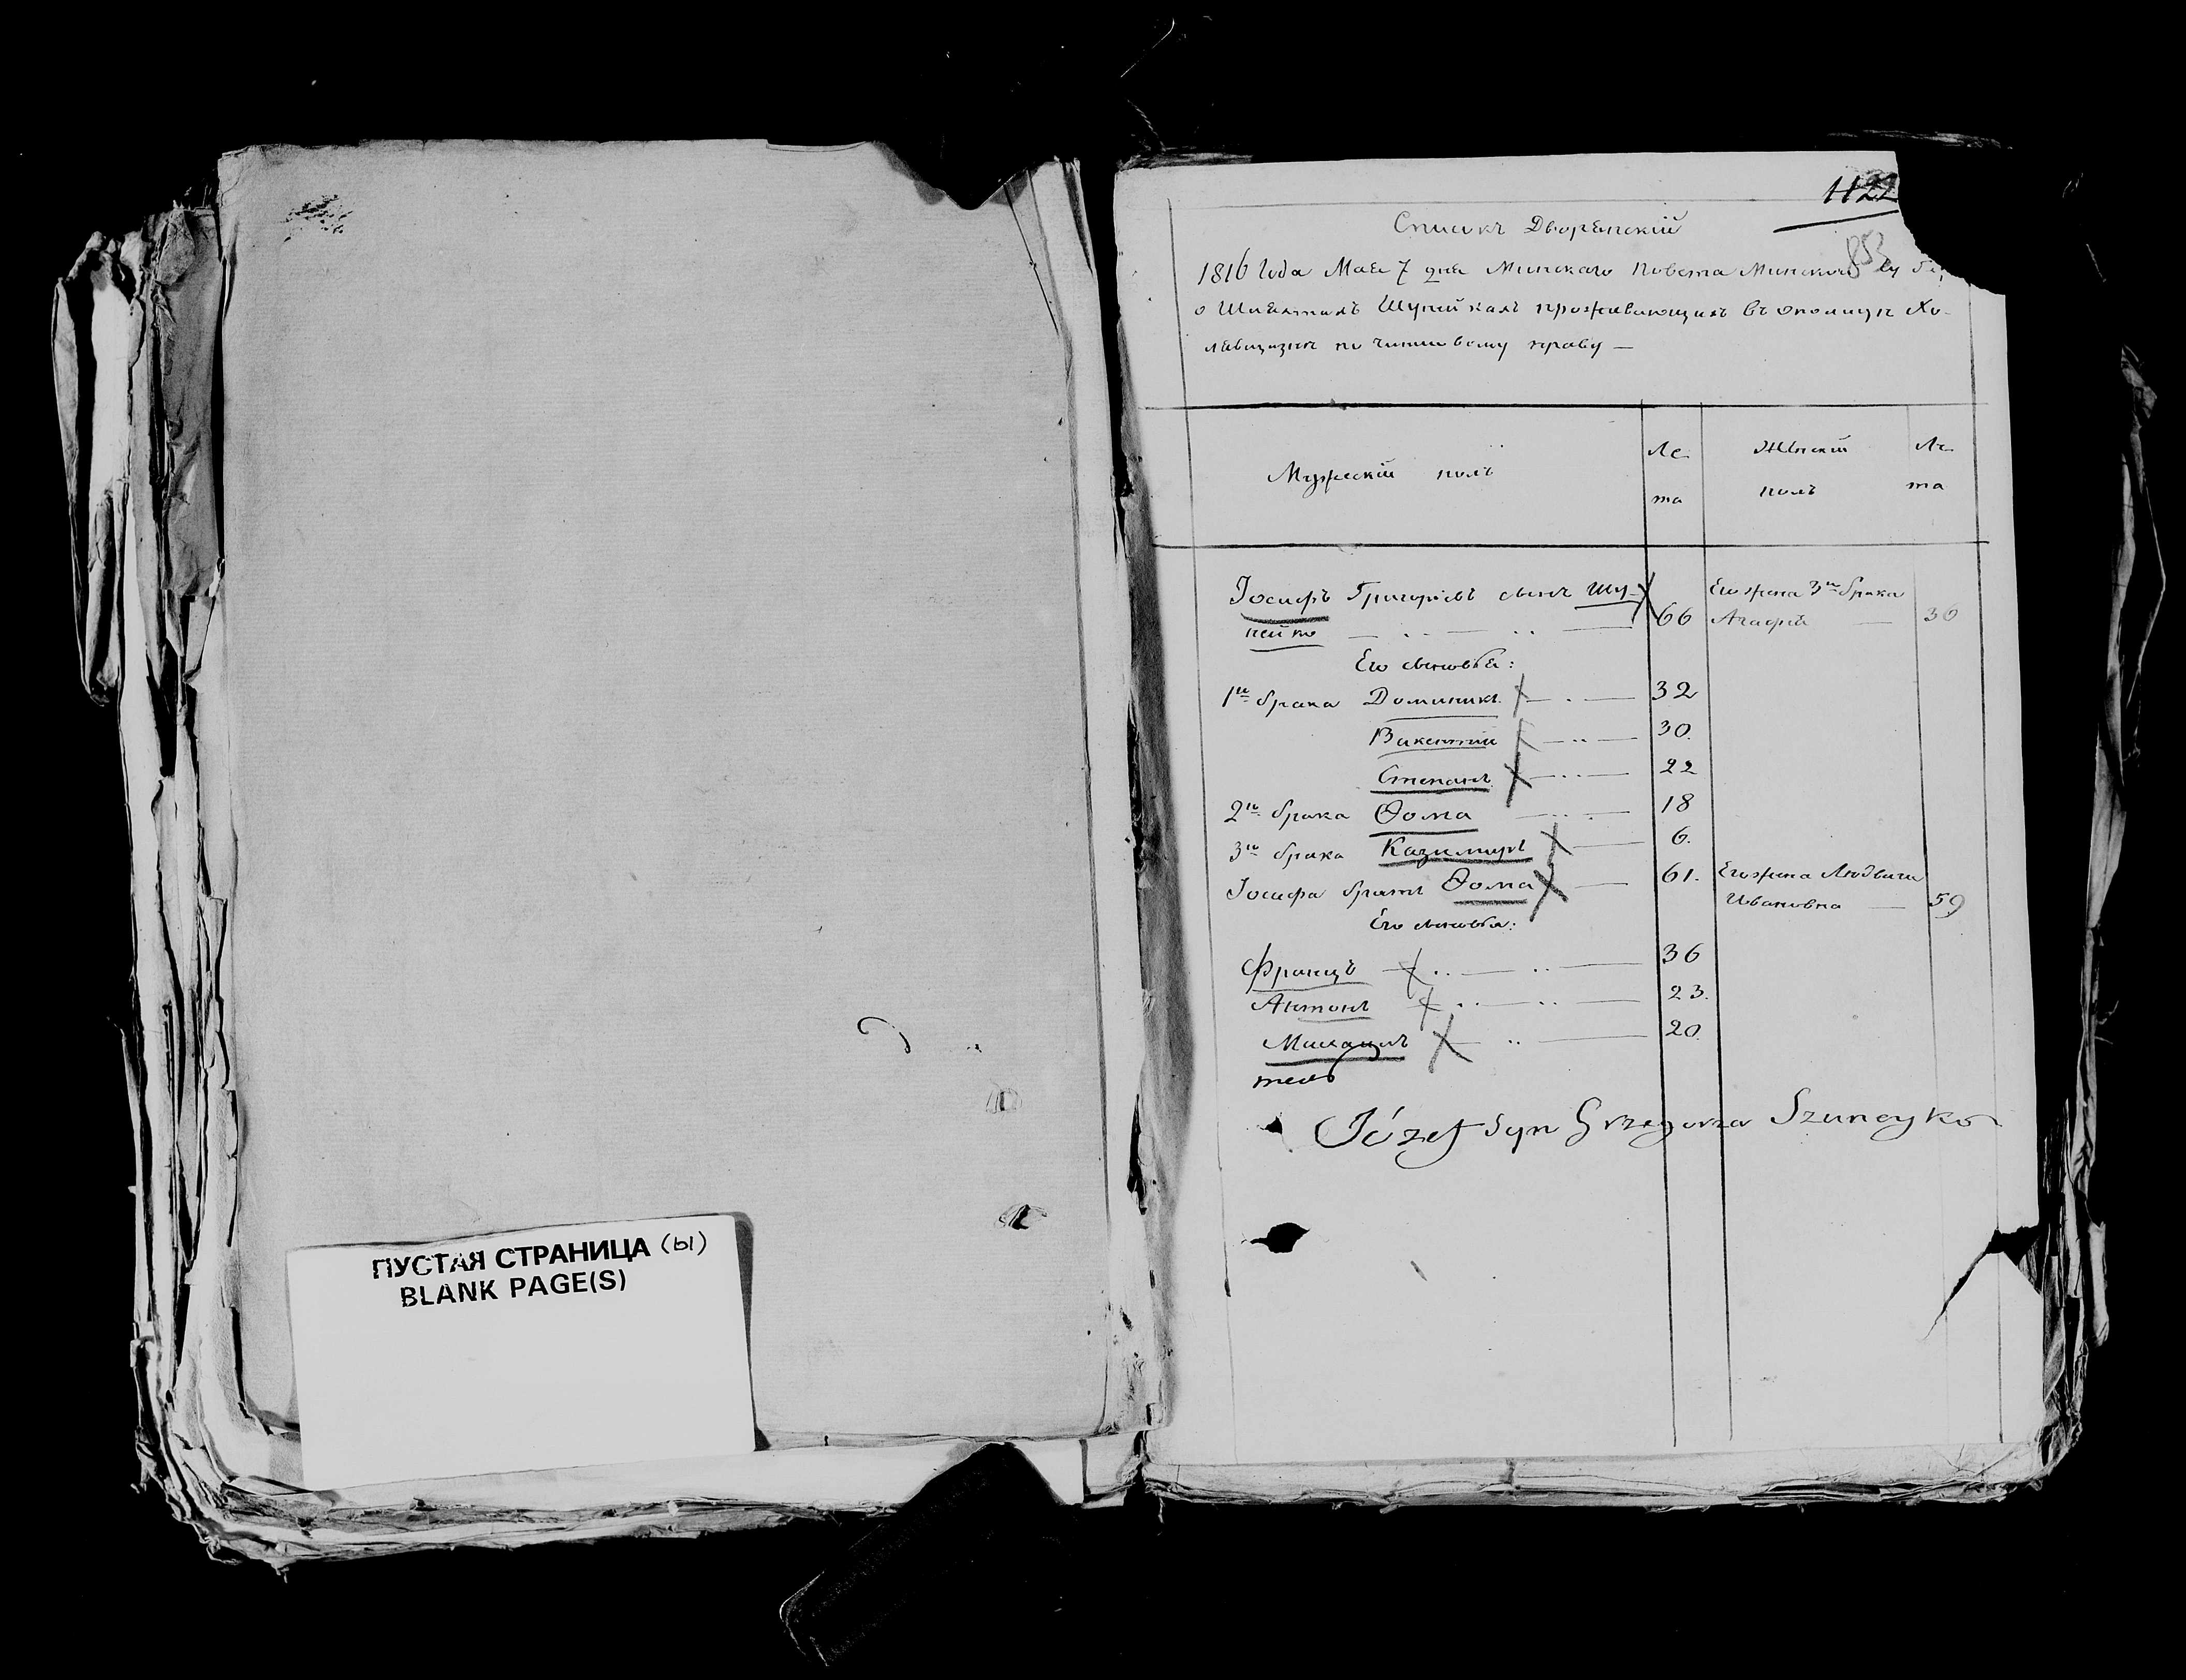 ПУСТАЯ СТРАНИЦА (ы)
BLANK PAGE(S)
1122
853
Списокъ Дворянскій
1816 Года Мая 7 дня Минскаго Повета Минской
о Шляхтахъ Шунейкахъ проживающихъ въ околицѣ Хо-
левщизнѣ по чиншовому праву —
Мужескій полъ
Ле
та
Женскій
полъ
Ле
та
Іосифъ Григорьевъ сынъ Шу-
нейко 66
Его жена 3го брака
Агафія — 30
Его сыновья:
1го брака Доминикъ 32
Викентій 30.
Степанъ 22
2го брака Ѳома 18
3го брака Казимиръ 6.
Іосифа братъ Ѳома 61.
Его жена Людвига
Ивановна — 59
Его сыновья:
Францъ 36
Антонъ 23.
Михаилъ 20.
Józef Syn Grzegorza Szuneyko